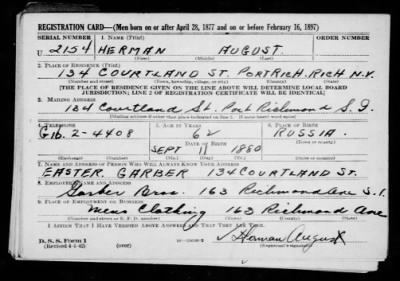 REGISTRATION CARD—(Men born on or after April 28, 1877 and on or before February 16, 1897)
SERIAL NUMBER 1. NAME (Print) ORDER NUMBER
U 2154 HERMAN AUGUST
(First) (Middle) (Last)
2. PLACE OF RESIDENCE (Print)
134 COURTLAND ST. PORT RICH. RICH N.Y.
(Number and street) (Town, township, village, or city) (County) (State)
[THE PLACE OF RESIDENCE GIVEN ON THE LINE ABOVE WILL DETERMINE LOCAL BOARD
JURISDICTION; LINE 2 OF REGISTRATION CERTIFICATE WILL BE IDENTICAL]
3. MAILING ADDRESS
134 Courtland St. Port Richmond S.I.
4. TELEPHONE 5. AGE IN YEARS 6. PLACE OF BIRTH
Gib. 2-4408 62 RUSSIA.
DATE OF BIRTH (Town or county)
SEPT 11 1880
(Exchange) (Number) (Mo.) (Day) (Yr.) (State or country)
7. NAME AND ADDRESS OF PERSON WHO WILL ALWAYS KNOW YOUR ADDRESS
EASTER. GARBER 134 COURTLAND ST.
8. EMPLOYER'S NAME AND ADDRESS
Garber Bros. 163 Richmond Ave S.I.
9. PLACE OF EMPLOYMENT OR BUSINESS
Mens Clothing 163 Richmond Ave
(Number and street or R. F. D. number) (Town) (County) (State)
I AFFIRM THAT I HAVE VERIFIED ABOVE ANSWERS AND THAT THEY ARE TRUE.
D. S. S. Form 1
(Revised 4-1-42) (over)
Herman August
(Registrant's signature)